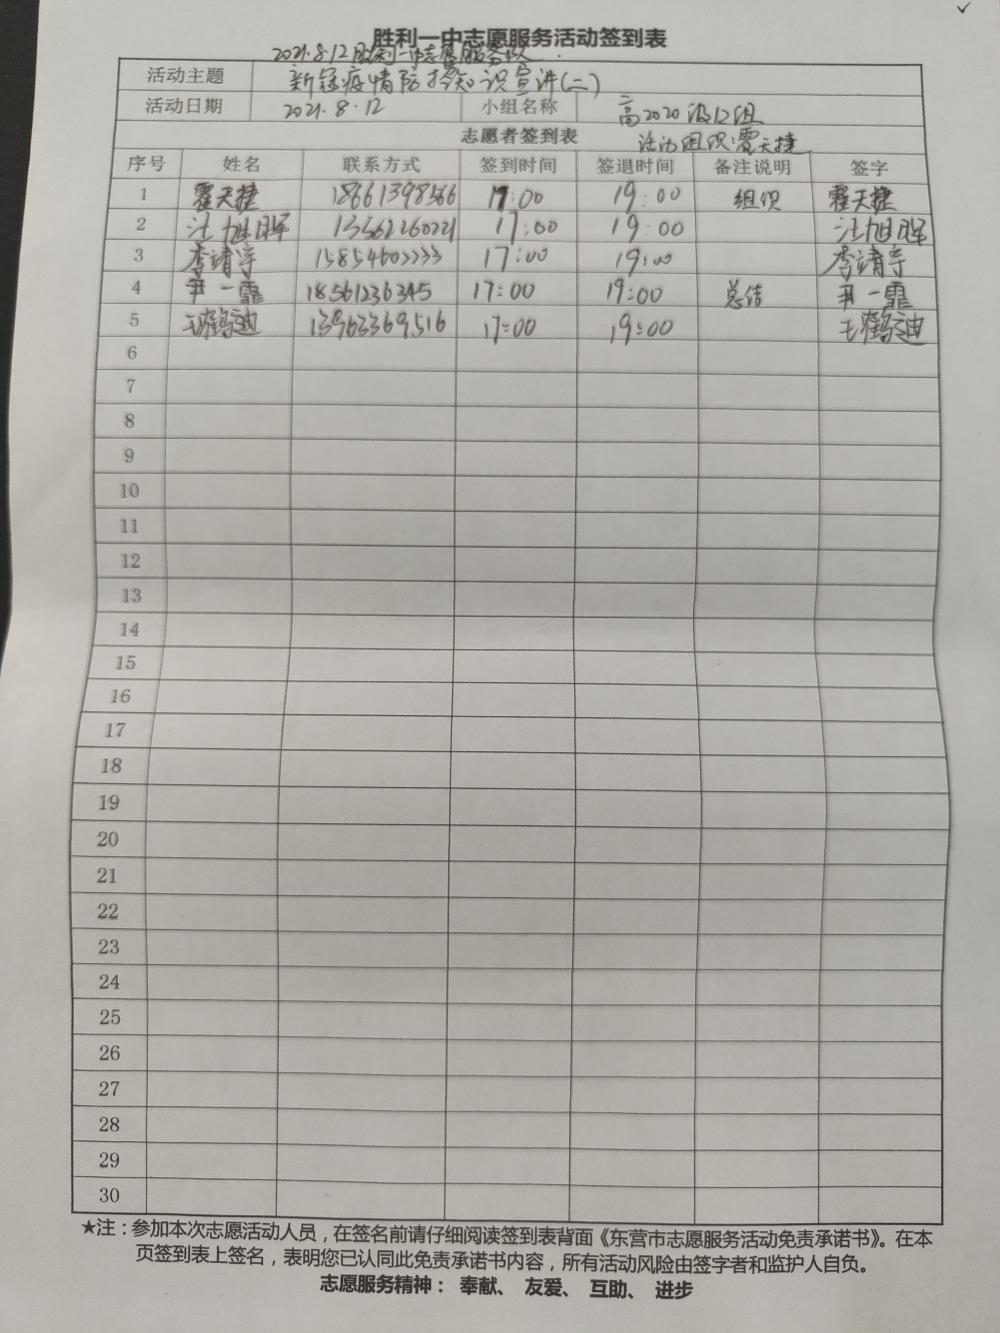 胜利一中志愿服务活动签到表
2021.8.12胜利一中志愿服务队
活动主题 新冠疫情防控知识宣讲(二)
活动日期 2021.8.12 小组名称 高2020级12组
志愿者签到表 活动组织:霍天捷
序号 姓名 联系方式 签到时间 签退时间 备注说明 签字
1 霍天捷 18661398566 17:00 19:00 组织 霍天捷
2 汪旭晖 13562260221 17:00 19:00 汪旭晖
3 李靖宇 15854603333 17:00 19:00 李靖宇
4 尹一霏 18561236345 17:00 19:00 总结 尹一霏
5 王鹤迪 13963369516 17:00 19:00 王鹤迪
6
7
8
9
10
11
12
13
14
15
16
17
18
19
20
21
22
23
24
25
26
27
28
29
30
★注：参加本次志愿活动人员，在签名前请仔细阅读签到表背面《东营市志愿服务活动免责承诺书》。在本
页签到表上签名，表明您已认同此免责承诺书内容，所有活动风险由签字者和监护人自负。
志愿服务精神： 奉献、 友爱、 互助、 进步